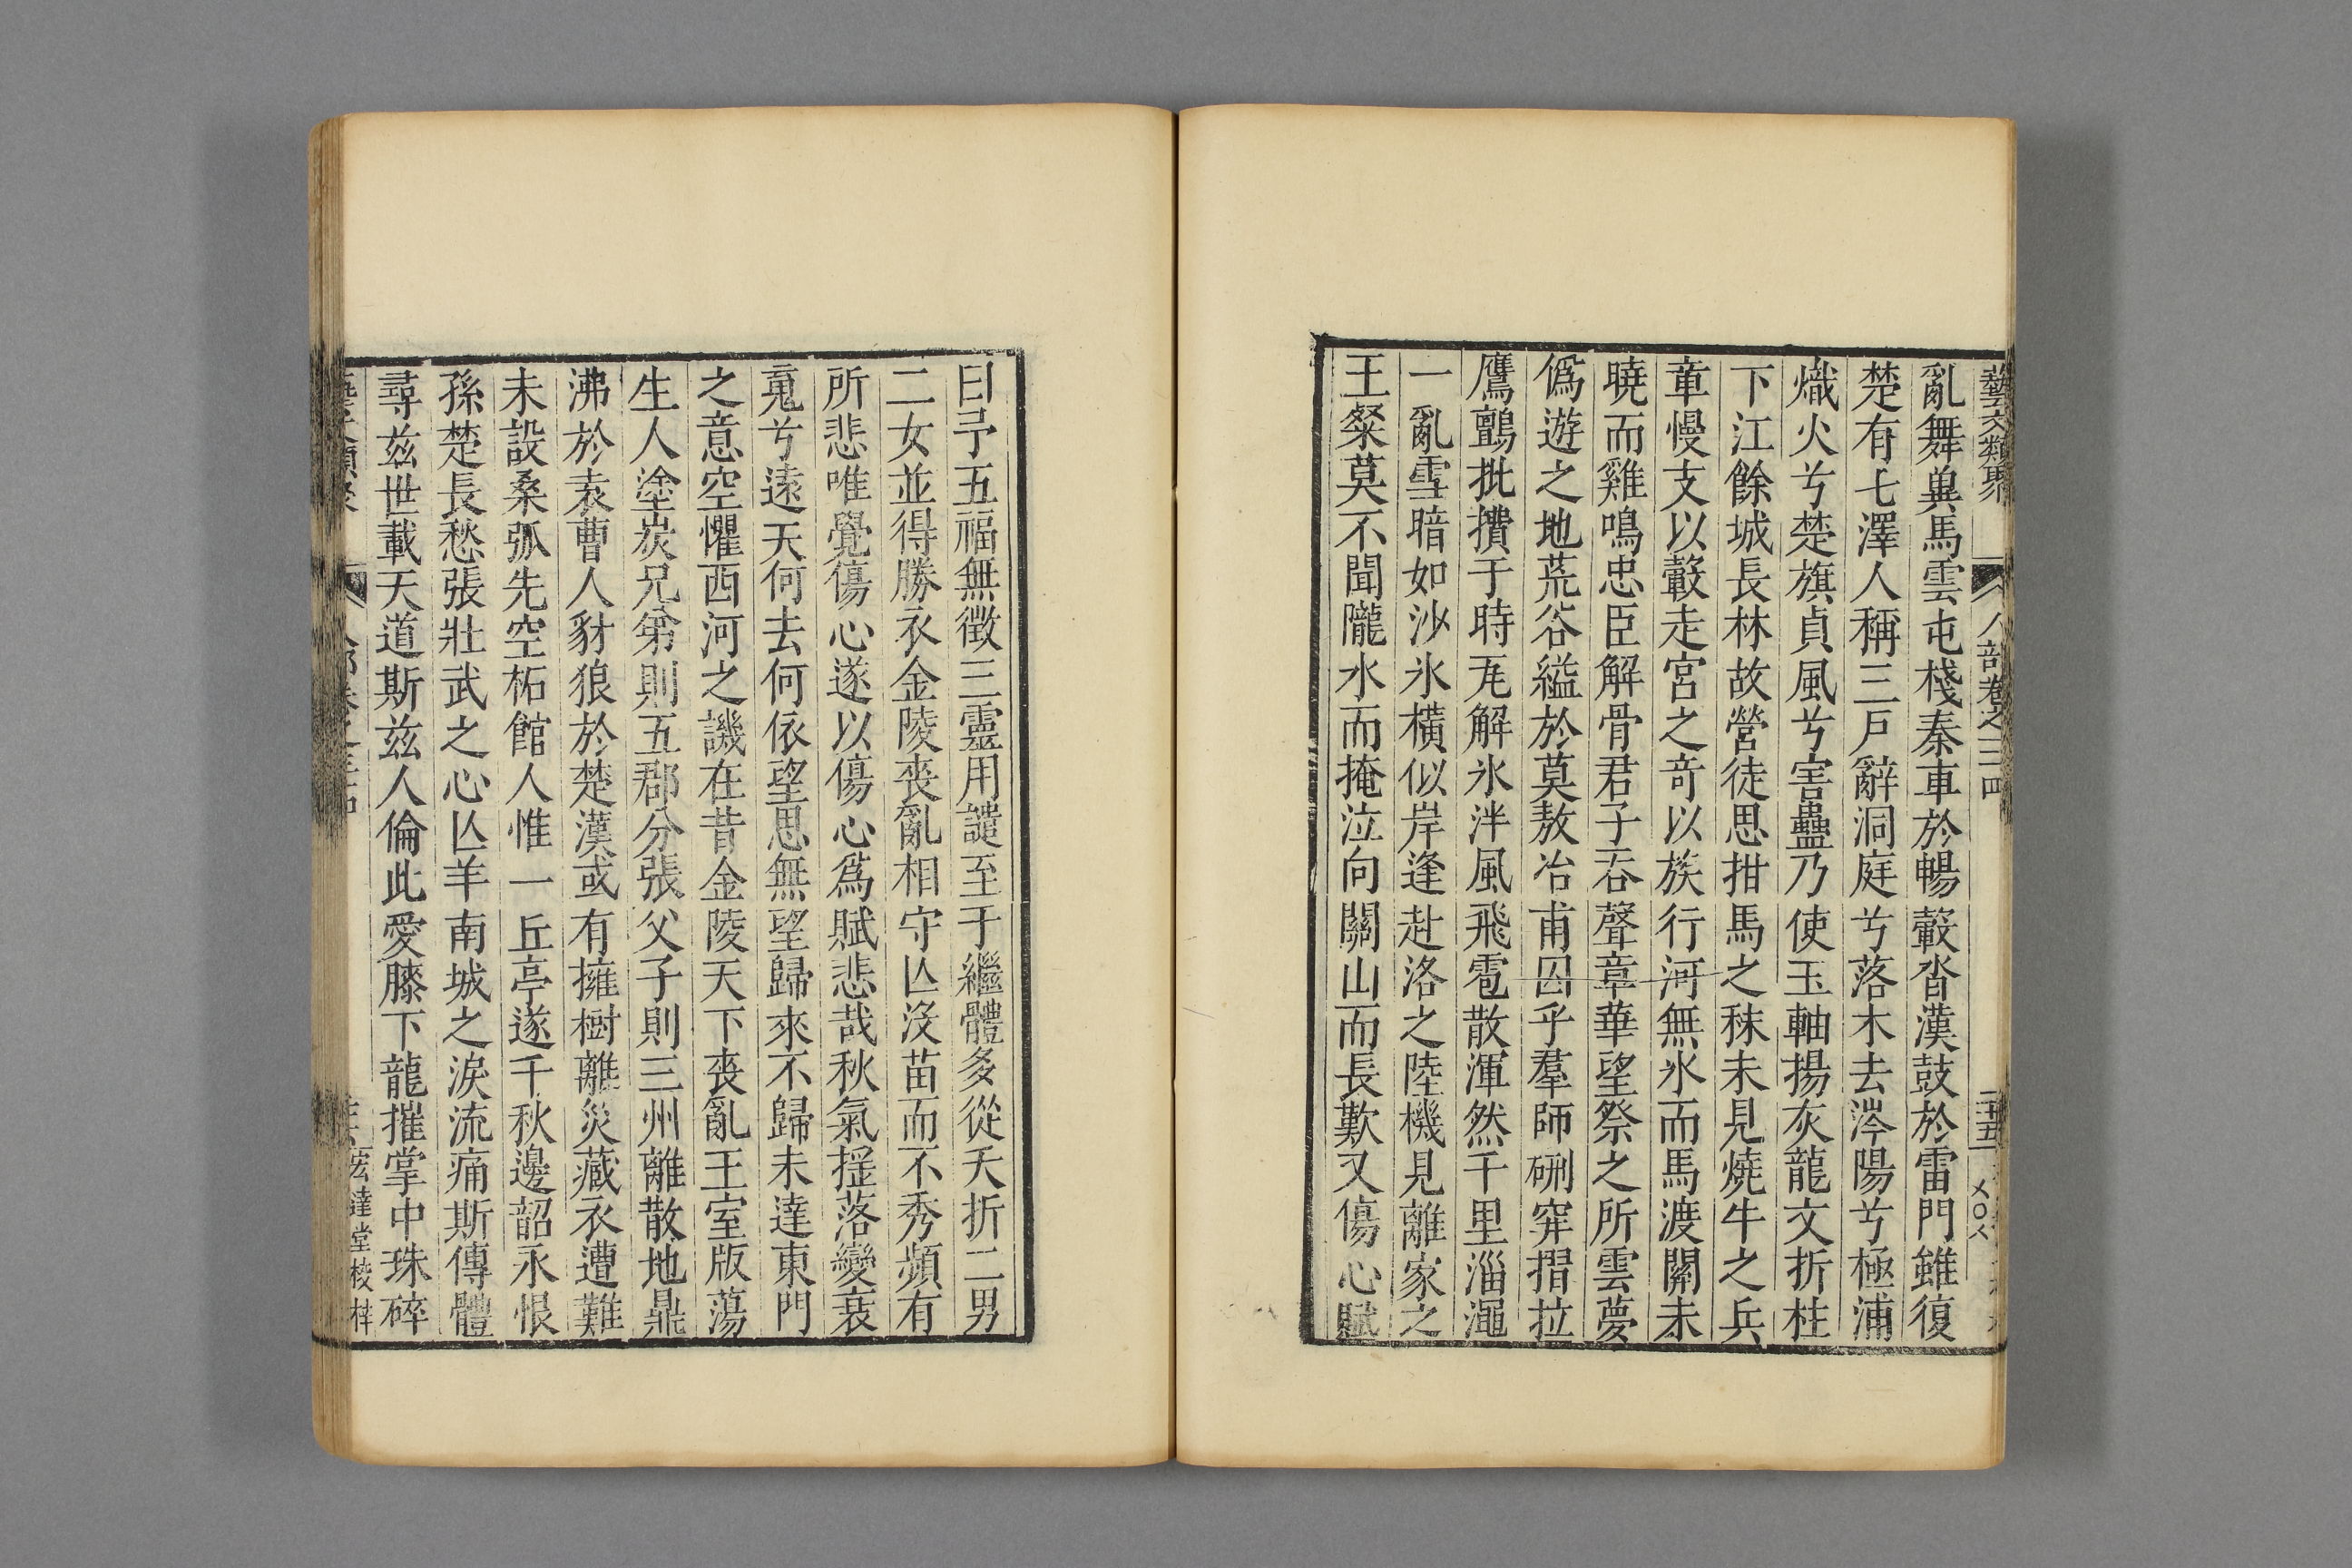 藝文類聚 人部卷之三四 三十五
亂舞兾馬雲屯棧秦車於暢轂沓漢鼓於雷門雖復
楚有七澤人稱三戸辭洞庭兮落木去涔陽兮極浦
熾火兮楚旗貞風兮害蠱乃使玉軸揚灰龍文折柱
下江餘城長林故營徒思拑馬之秣未見燒牛之兵
章慢支以轂走宮之奇以族行河無氷而馬渡關未
曉而雞鳴忠臣解骨君子吞聲章華望祭之所雲夢
僞遊之地荒谷縊於莫敖冶甫囚乎羣師硎穽摺拉
鷹鸇批㩌于時瓦解氷泮風飛雹散渾然千里淄澠
一亂雪暗如沙氷橫似岸逢赴洛之陸機見離家之
王粲莫不聞隴水而掩泣向關山而長歎又傷心賦
曰予五福無徵三靈用譴至于繼體多從夭折二男
二女並得勝衣金陵喪亂相守亾沒苗而不秀頻有
所悲唯覺傷心遂以傷心爲賦悲哉秋氣揺落變衰
䰟兮遠天何去何依望思無望歸來不歸未達東門
之意空懼西河之譏在昔金陵天下喪亂王室版蕩
生人塗炭兄第則五郡分張父子則三州離散地鼎
沸於袁曹人豺狼於楚漢或有擁樹離災藏衣遭難
未設桑弧先空柘館人惟一丘亭遂千秋邊韶永恨
孫楚長愁張壯武之心亾羊南城之淚流痛斯傳體
尋兹世載天道斯兹人倫此愛膝下龍摧掌中珠碎
宏達堂棱梓